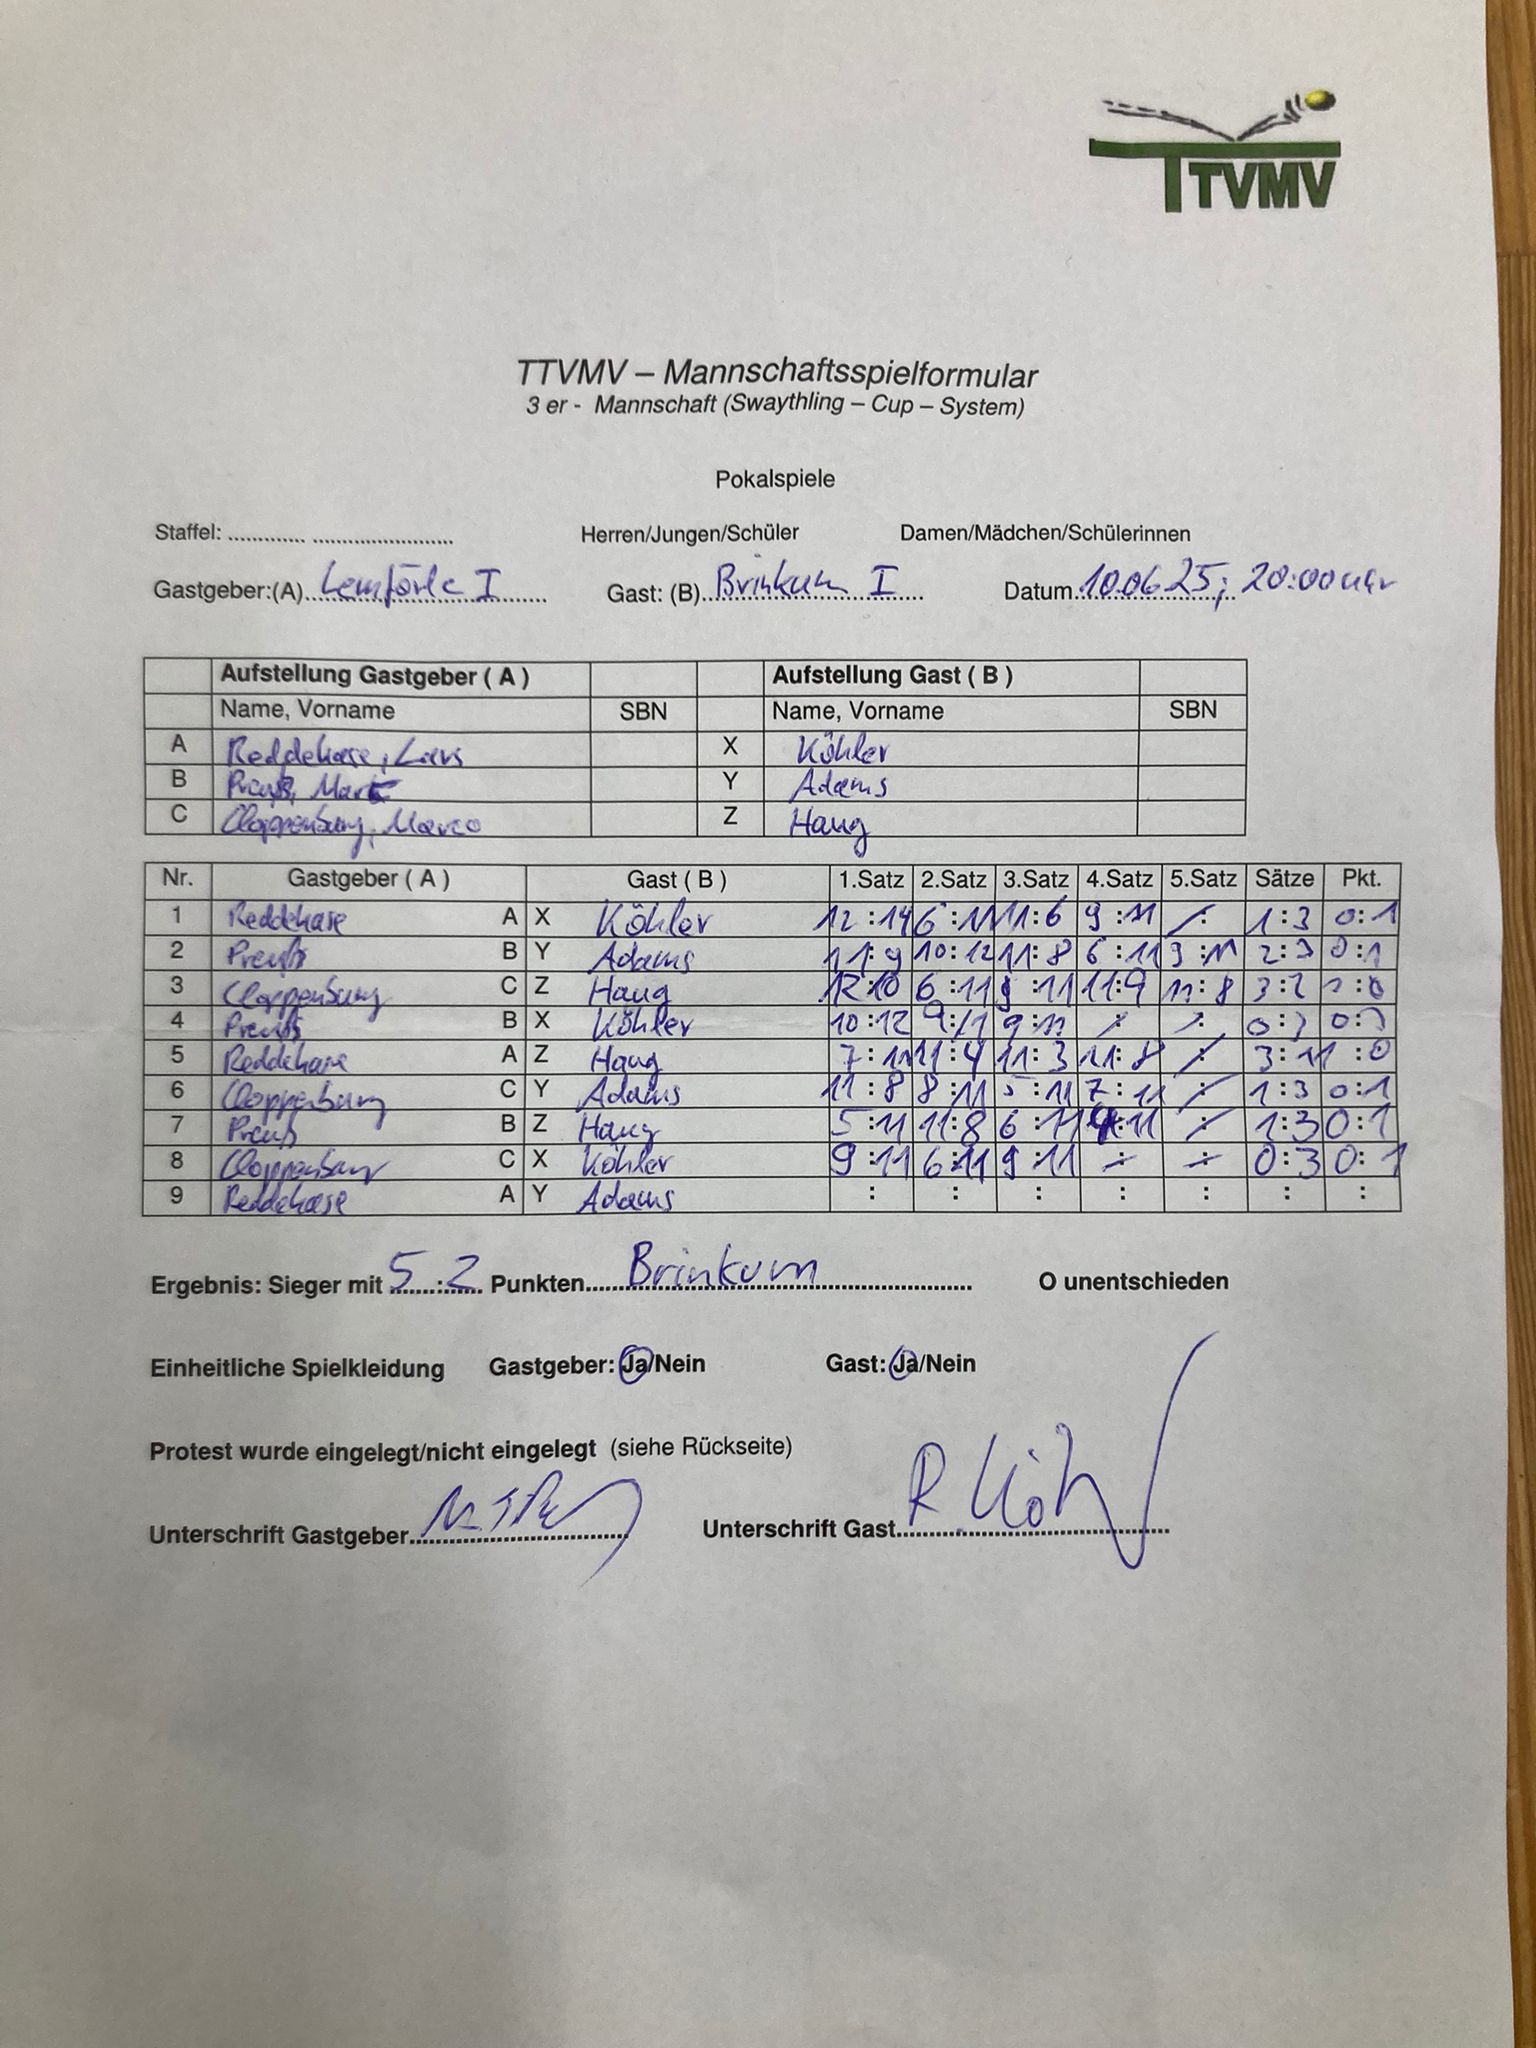 TTVMV
TTVMV – Mannschaftsspielformular
3 er - Mannschaft (Swaythling – Cup – System)
Pokalspiele
Staffel: ............. ........................ Herren/Jungen/Schüler Damen/Mädchen/Schülerinnen
Gastgeber:(A) Lemförde I Gast: (B) Brinkum I Datum 10.06.25; 20:00 Uhr
Aufstellung Gastgeber ( A ) Aufstellung Gast ( B )
Name, Vorname SBN Name, Vorname SBN
A Reddehase, Lars X Köhler
B Preuß, Mark Y Adams
C Cloppenburg, Marco Z Haug
Nr. Gastgeber ( A ) Gast ( B ) 1.Satz 2.Satz 3.Satz 4.Satz 5.Satz Sätze Pkt.
1 Reddehase A X Köhler 12:14 6:11 11:6 9:11 : 1:3 0:1
2 Preuß B Y Adams 11:9 10:12 11:8 6:11 9:11 2:3 0:1
3 Cloppenburg C Z Haug 12:10 6:11 9:11 11:9 11:8 3:2 1:0
4 Preuß B X Köhler 10:12 9:11 9:11 : : 0:3
5 Reddehase A Z Haug 7:11 11:4 11:3 11:8 : 3:1 1:0
6 Cloppenburg C Y Adams 11:8 8:11 5:11 7:11 : 1:3 0:1
7 Preuß B Z Haug 5:11 11:8 6:11 :11 : 1:3 0:1
8 Cloppenburg C X Köhler 9:11 6:11 9:11 : : 0:3 0:1
9 Reddehase A Y Adams : : : : : : :
Ergebnis: Sieger mit 5:2 Punkten Brinkum O unentschieden
Einheitliche Spielkleidung Gastgeber: Ja/Nein Gast: Ja/Nein
Protest wurde eingelegt/nicht eingelegt (siehe Rückseite)
Unterschrift Gastgeber Unterschrift Gast R. Köh